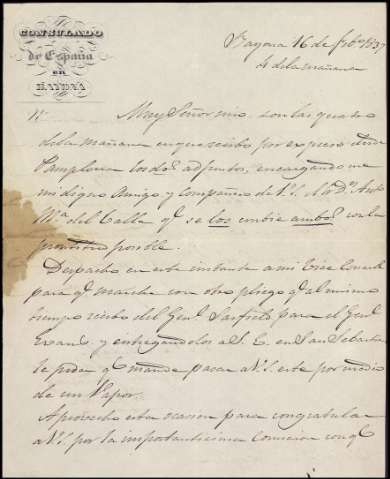 CONSULADO
de España
EN
BAYONA
Bayona 16 de febo 1837
4 de la mañana
Muy Señor mio. son las quatro
de la mañana en que recibo por expreso desde
Pamplona los dos adjuntos, encargandome
mi digno Amigo y Compañero de V.S. el Sr Dn Anto
Ma del Valle qe se los embie ambos con la
prontitud posible.
Despacho en este instante a mi Vice Consul
para qe marche con otro pliego qe al mismo
tiempo recibo del Genl Sarsfield para el Genl
Evans y entregandolos a S.E. en San Sebastian
le pida qe mande pasar a V.S. este por medio
de un Vapor.
Aprovecho esta ocasion para congratular
a V.S. por la importantisima Comision con qe